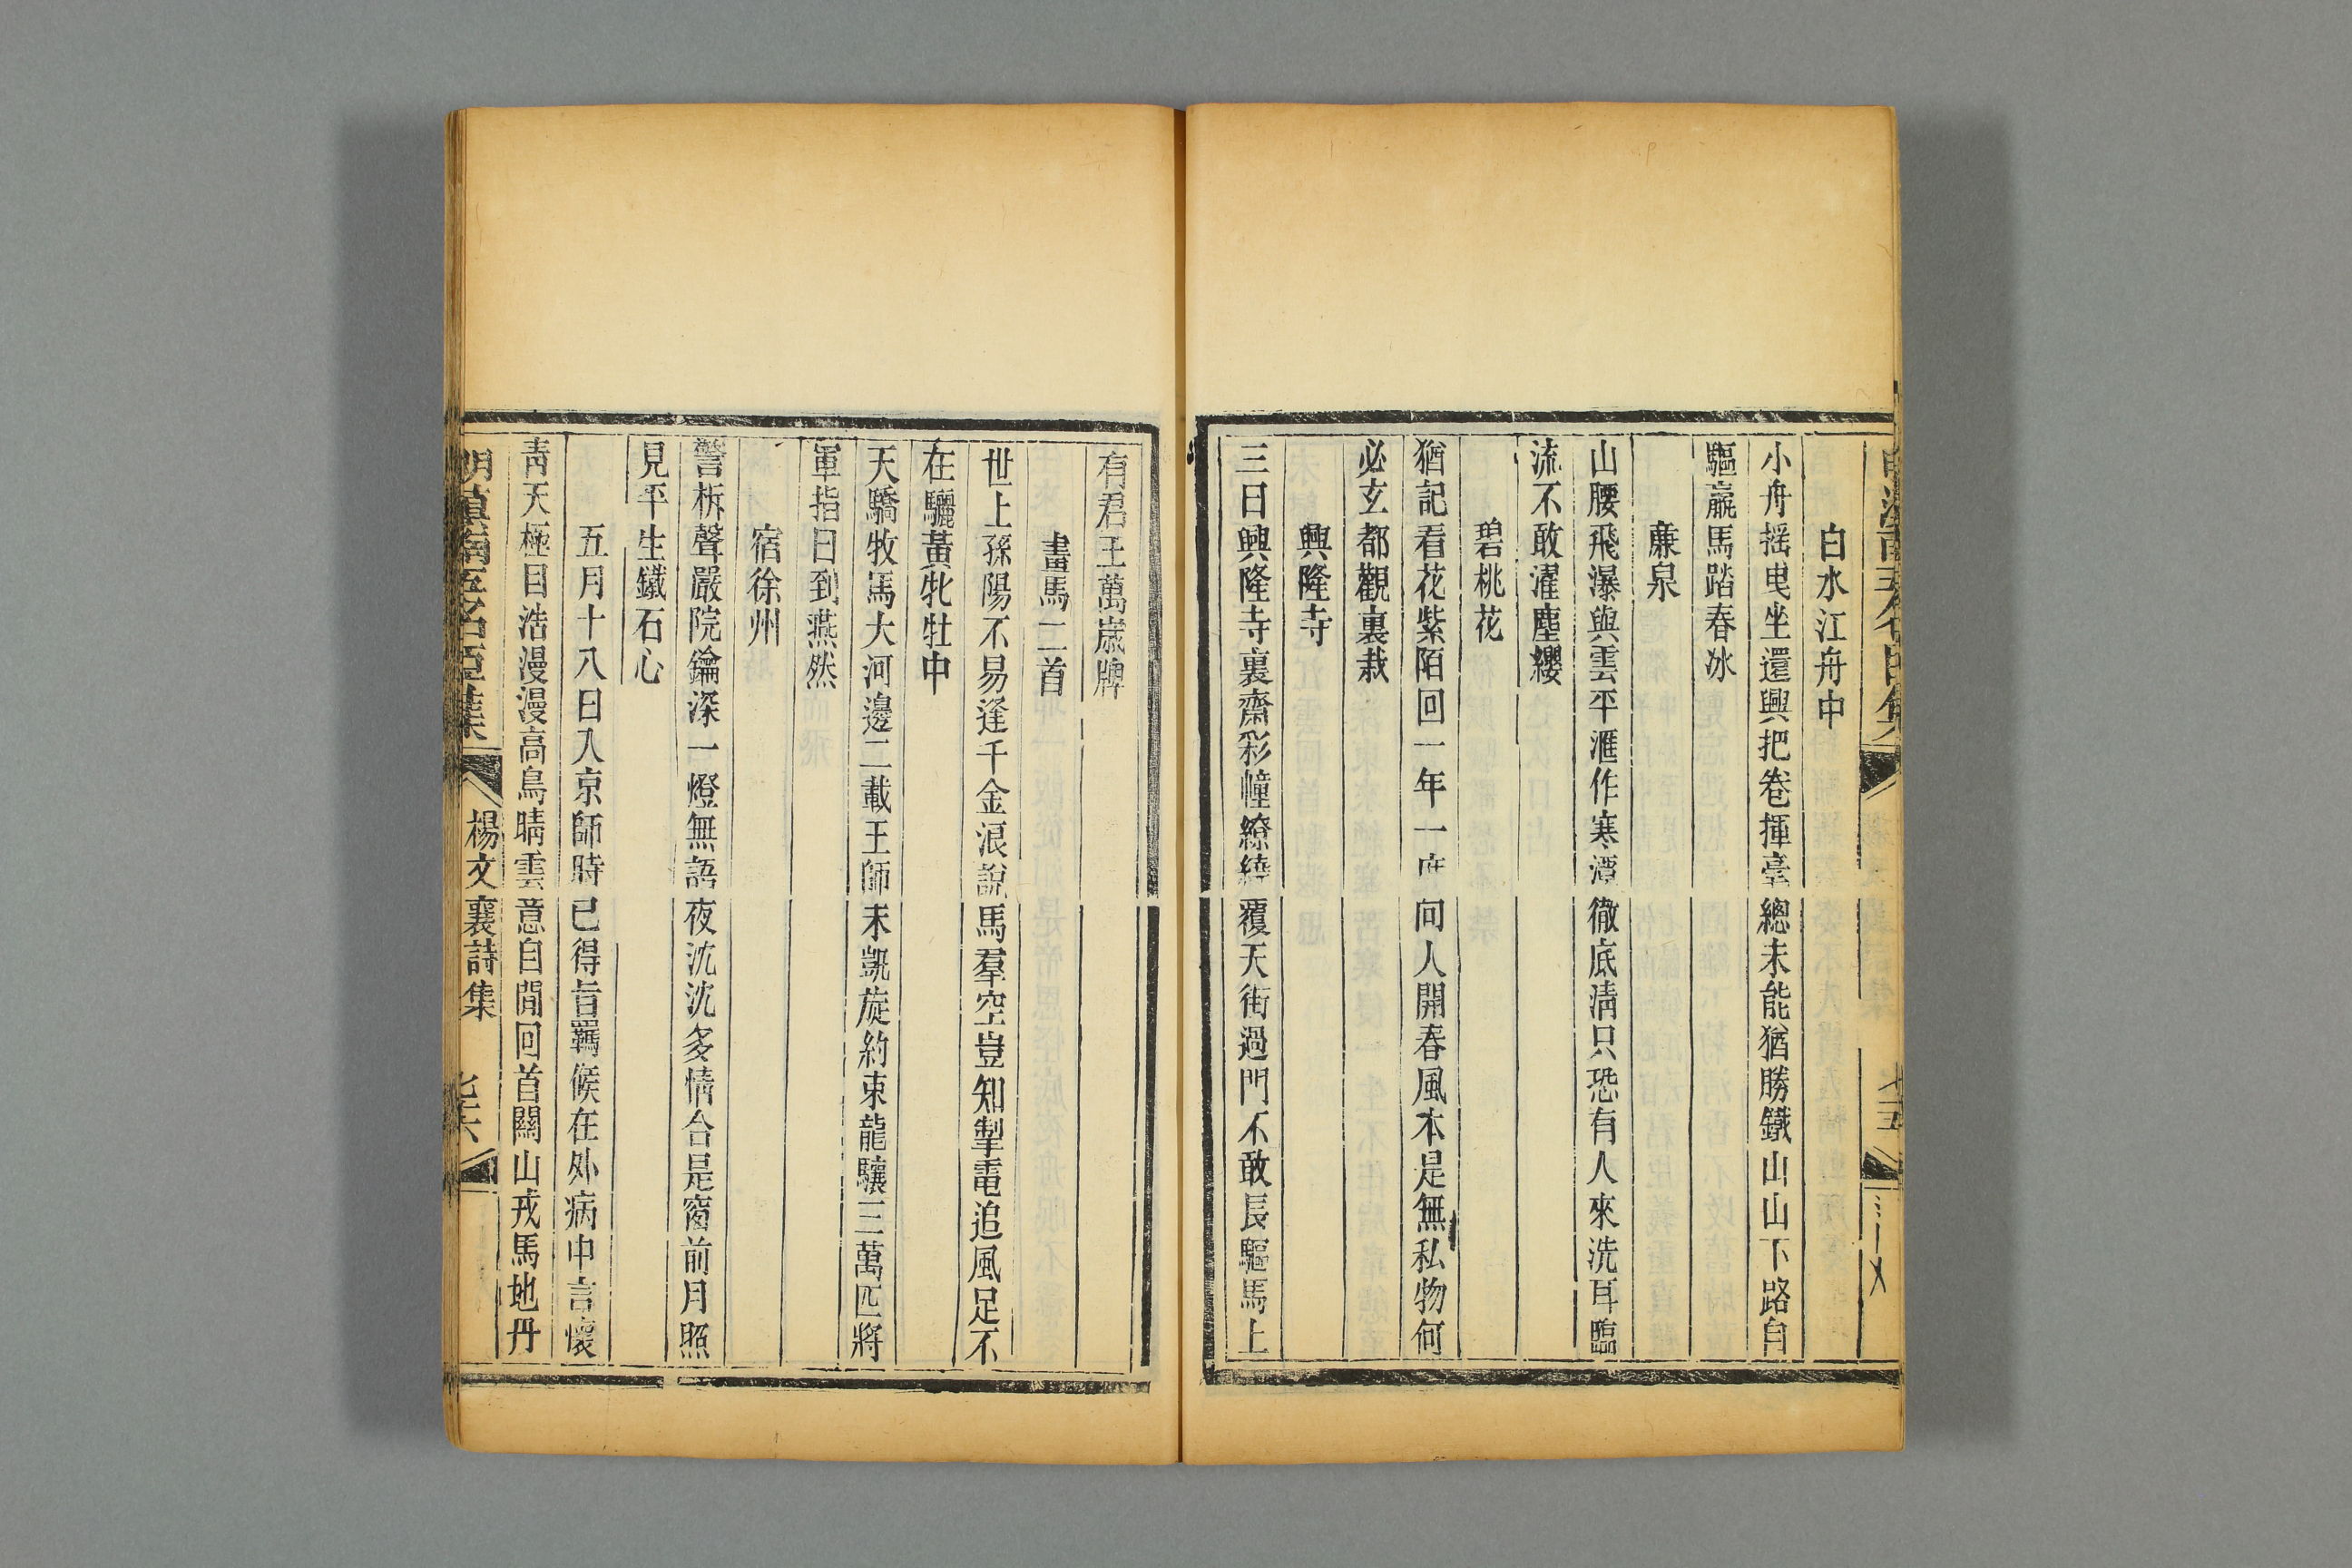 白水江舟中
小舟摇曳坐還興把卷揮毫總未能猶勝鐵山山下路自
驅羸馬踏春冰
亷泉
山腰飛瀑與雲平滙作寒潭徹底淸只恐有人來洗耳臨
流不敢濯塵纓
碧桃花
猶記看花紫陌回一年一度問人開春風本是無私物何
必玄都觀裏栽
興隆寺
三日興隆寺裏齋彩幢繚繞覆天街過門不敢長驅馬上
有君王萬嵗牌
畫馬二首
世上孫陽不易逢千金浪說馬羣空豈知掣電追風足不
在驪黃牝牡中
天驕牧馬大河邊二載王師未凱旋約束龍驤三萬匹將
軍指日到燕然
宿徐州
警柝聲嚴院鑰深一燈無語夜沈沈多情合是窗前月照
見平生鐵石心
五月十八日入京師時已得旨羈候在外病中言懷
靑天極目浩漫漫高鳥晴雲意自閒回首關山戎馬地丹
明滇南五名臣集
楊文襄詩集
七十六